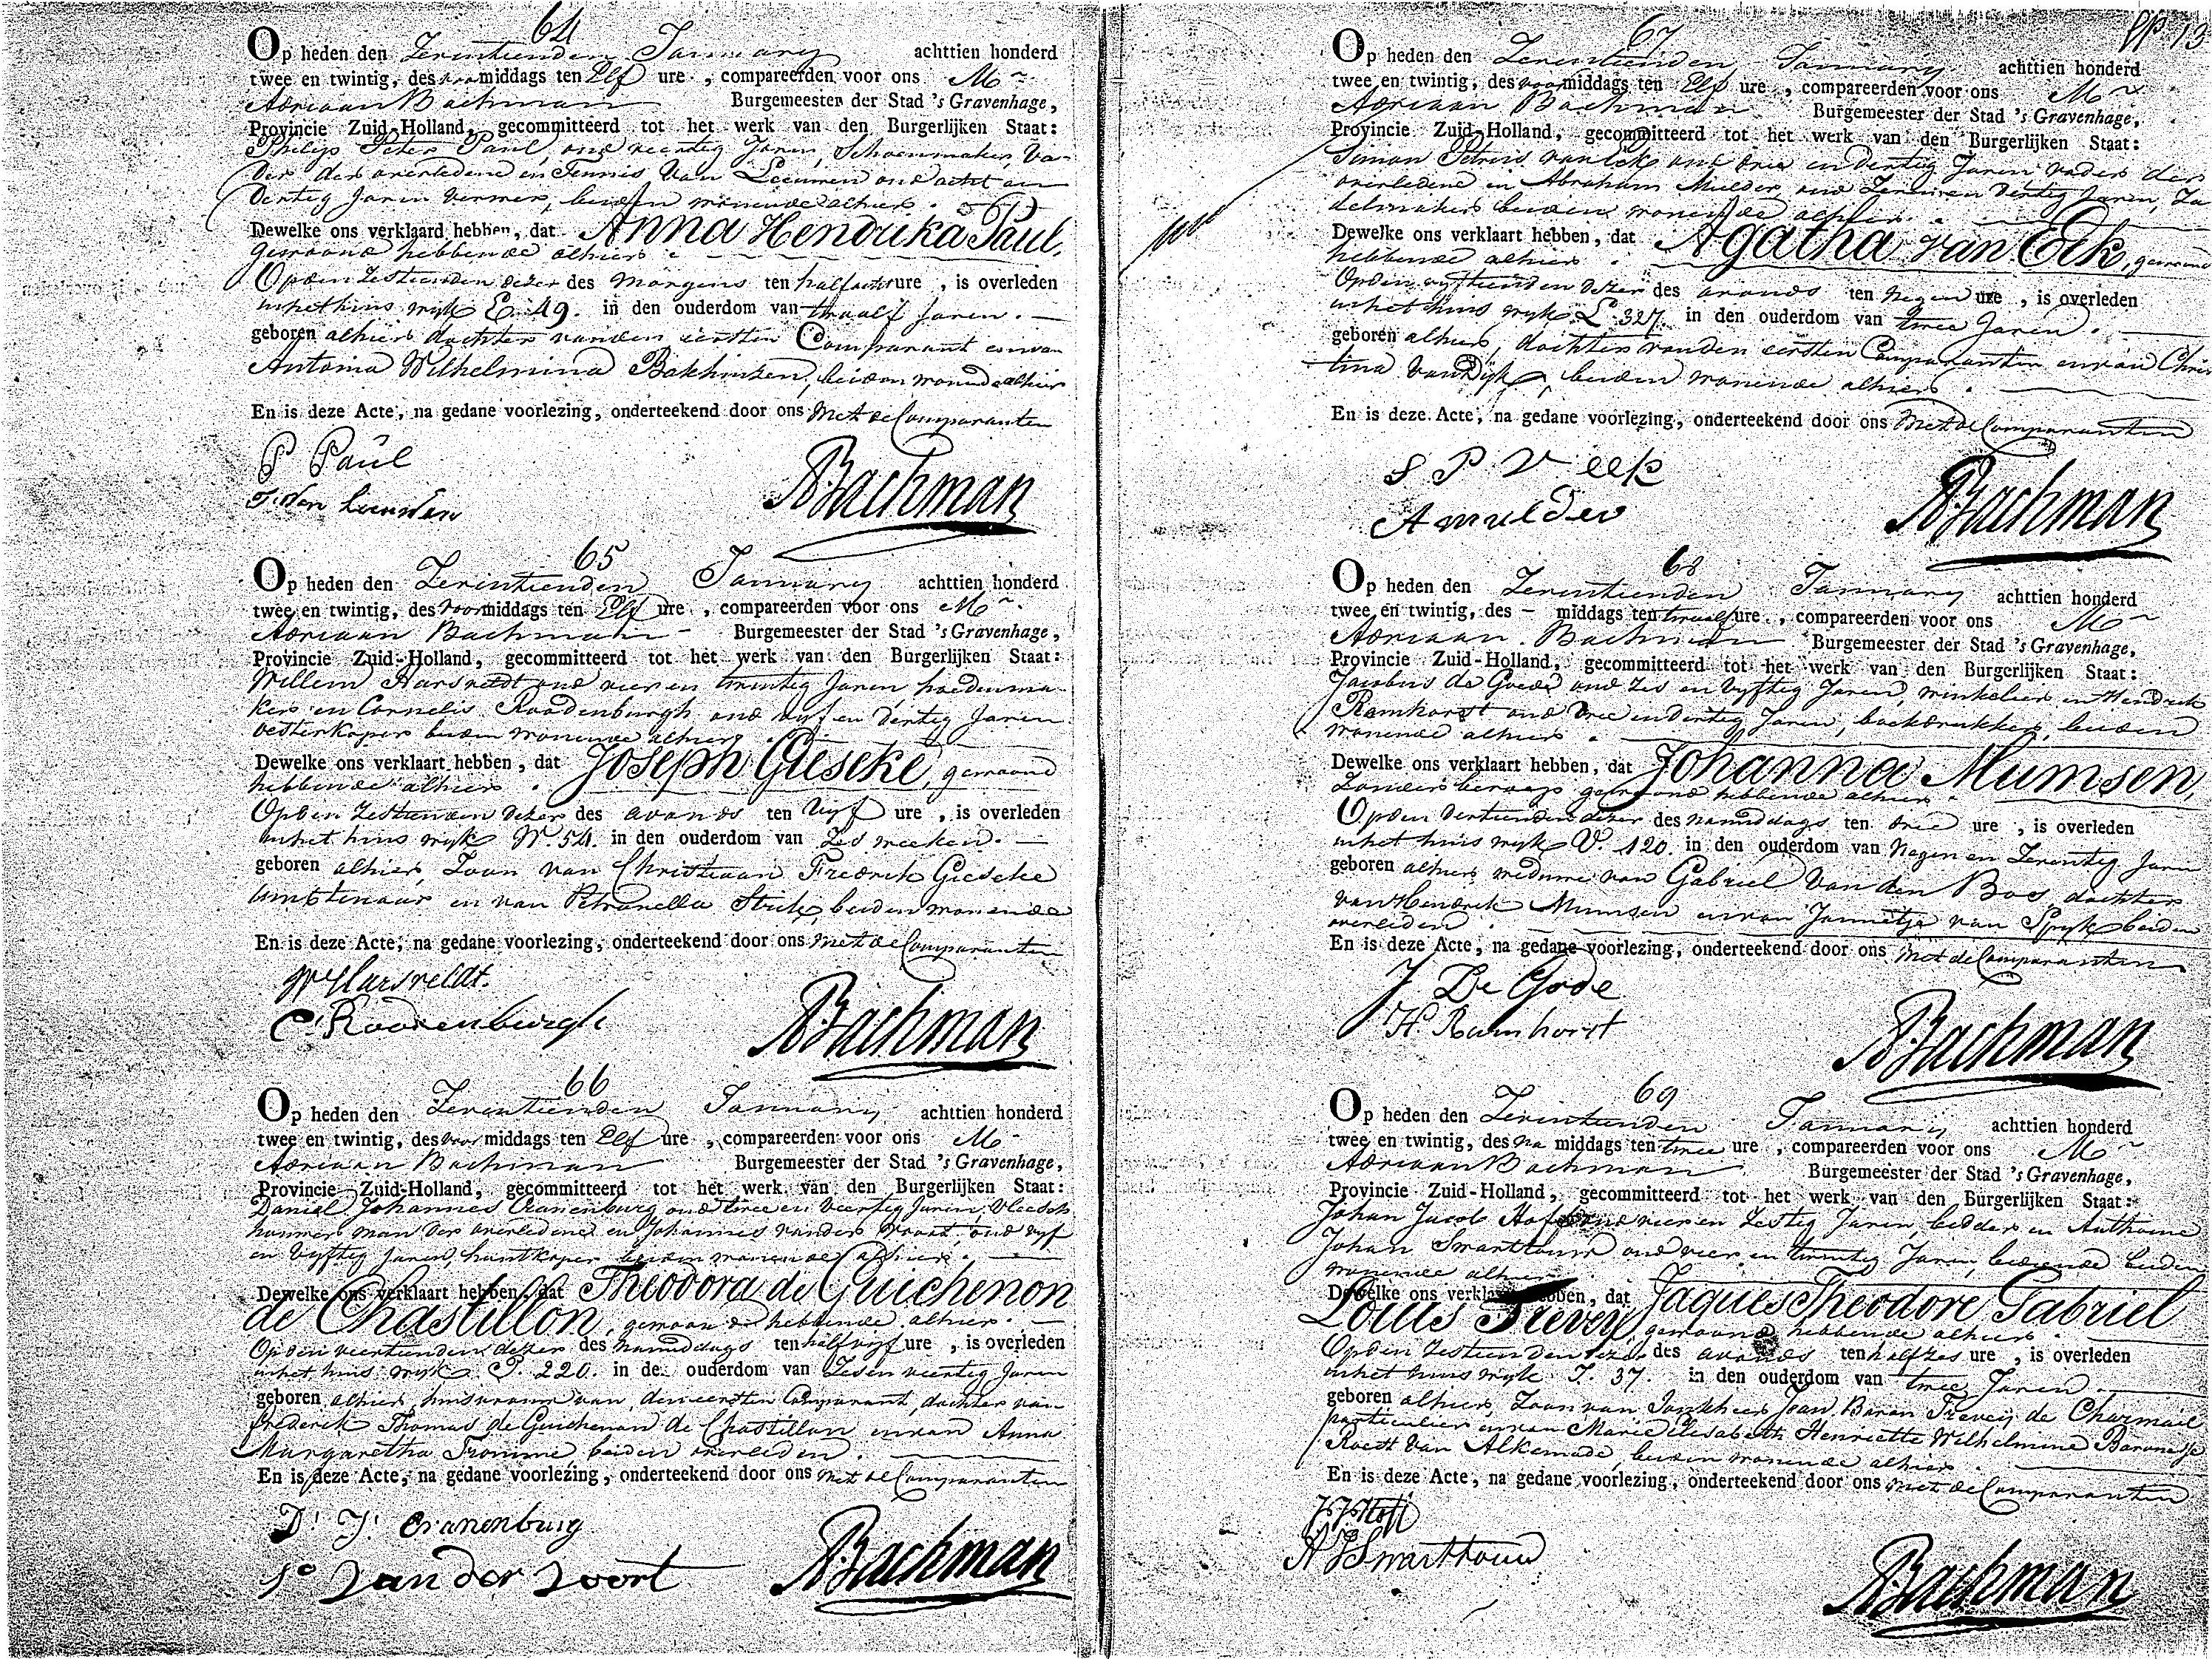 64
Op heden den Zeventienden January achttien honderd
twee en twintig, des voormiddags ten Elf ure, compareerden voor ons Mr
Adriaan Bachman Burgemeester der Stad 's Gravenhage,
Provincie Zuid-Holland, gecommitteerd tot het werk van den Burgerlijken Staat:
Philip Peter Paul, oud veertig Jaren, Schoenmaker Va-
der der overledene en Teunis van Leeuwen oud acht en
dertig Jaren verwer, beiden wonende alhier.
Dewelke ons verklaard hebben, dat Anna Hendrika Paul,
gewoond hebbende alhier.
Op den Zestienden dezer des morgens ten half acht ure, is overleden
in het huis wijk E. 49. in den ouderdom van twaalf Jaren.
geboren alhier dochter van den eersten Comparant en van
Antonia Wilhelmina Bakhuizen, beiden wonende alhier
En is deze Acte, na gedane voorlezing, onderteekend door ons met de Comparanten
P Paul
T. van Leeuwen
ABachman
65
Op heden den Zeventienden January achttien honderd
twee en twintig, des voormiddags ten Elf ure, compareerden voor ons Mr
Adriaan Bachman Burgemeester der Stad 's Gravenhage,
Provincie Zuid-Holland, gecommitteerd tot het werk van den Burgerlijken Staat:
Willem Harsveldt oud vier en twintig Jaren hoedenma-
ker en Cornelis Roodenburgh oud vijf en dertig Jaren
oesterkoper beiden wonende alhier
Dewelke ons verklaart hebben, dat Joseph Gieseke, gewoond
hebbende alhier.
Op den Zestienden dezer des avonds ten Vijf ure, is overleden
in het huis wijk W. 54. in den ouderdom van Zes weeken.
geboren alhier, Zoon van Christiaan Fredrik Gieseke
Ambtenaar en van Petronella Strik, beiden wonende
En is deze Acte, na gedane voorlezing, onderteekend door ons met de Comparanten
W Harsveldt.
C: Roodenburgh
ABachman
66
Op heden den Zeventienden January achttien honderd
twee en twintig, des voor middags ten Elf ure, compareerden voor ons Mr
Adriaan Bachman Burgemeester der Stad 's Gravenhage,
Provincie Zuid-Holland, gecommitteerd tot het werk van den Burgerlijken Staat:
Daniel Johannes Cranenburg oud twee en Veertig Jaren, Vleesch
houwer man der overledene en Johannes vander Voort, oud vijf
en Vijftig Jaren, houtkoper beiden wonende alhier.
Dewelke ons verklaart hebben, dat Theodora de Guichenon
de Chastillon, gewoond hebbende alhier.
Op den veertienden dezer des namiddags ten half vijf ure, is overleden
in het huis wijk P. 220. in de ouderdom van Zes en veertig Jaren
geboren alhier, huisvrouw van den eersten Comparant, dochter van
Frederik Thomas de Guichenon de Chastillon en van Anna
Margaretha Fromme, beiden overleden.
En is deze Acte, na gedane voorlezing, onderteekend door ons met de Comparanten
D: J: Cranenburg
Jo Van der Voort
ABachman
67
Op heden den Zeventienden January achttien honderd
twee en twintig, des voormiddags ten Elf ure, compareerden voor ons Mr
Adriaan Bachman Burgemeester der Stad 's Gravenhage,
Provincie Zuid-Holland, gecommitteerd tot het werk van den Burgerlijken Staat:
Simon Petrus van Eek oud drie en dertig Jaren vader der
overledene en Abraham Mulder, oud Zeven en dertig Jaren, Za
delmaker beiden wonende alhier.
Dewelke ons verklaart hebben, dat Agatha van Eek, gewoond
hebbende alhier.
Op den vijftienden dezer des avonds ten negen ure, is overleden
in het huis wijk L. 327. in den ouderdom van twee Jaren.
geboren alhier, dochter van den eersten Comparanten en van Chris
tina van Dijk, beiden wonende alhier.
En is deze Acte, na gedane voorlezing, onderteekend door ons met de Comparanten
S P V eek
A mulder
ABachman
68
Op heden den Zeventienden January achttien honderd
twee en twintig, des – middags ten twaalf ure, compareerden voor ons Mr
Adriaan Bachman Burgemeester der Stad 's Gravenhage,
Provincie Zuid-Holland, gecommitteerd tot het werk van den Burgerlijken Staat:
Jacobus de Goede oud Zes en Vijftig Jaren, winkelier en Hendrik
Ramhorst oud drie en dertig Jaren, boekdrukker, beiden
wonende alhier.
Dewelke ons verklaart hebben, dat Johanna Mumsen,
Zonder beroep gewoond hebbende alhier
Op den dertienden dezer des namiddags ten drie ure, is overleden
in het huis wijk V. 120. in den ouderdom van Negen en Zeventig Jaren
geboren alhier, weduwe van Gabriel van den Bos, dochter
van Hendrik Mumsen en van Jannetje van Spijk beiden
overleden.
En is deze Acte, na gedane voorlezing, onderteekend door ons met de Comparanten
J De Gode
H. Ramhorst
ABachman
69
Op heden den Zeventienden January achttien honderd
twee en twintig, des na middags ten twee ure, compareerden voor ons Mr
Adriaan Bachman Burgemeester der Stad 's Gravenhage,
Provincie Zuid-Holland, gecommitteerd tot het werk van den Burgerlijken Staat:
Johan Jacob Hoff oud vier en Zestig Jaren, bidder en Anthonie
Johan Swarthouw oud vier en twintig Jaren, bediende beiden
wonende alhier
Dewelke ons verklaart hebben, dat Jaques Theodore Gabriel
Louis Trevey, gewoond hebbende alhier.
Op den Zestienden dezer des avonds ten half zes ure, is overleden
in het huis wijk I. 37. in den ouderdom van twee Jaren
geboren alhier, Zoon van Jonkheer Jean, Baron Trevey de Charmail
particulier en van Marie Elisabeth Henriette Wilhelmine Baronesse
Roest van Alkemade, beiden wonende alhier.
En is deze Acte, na gedane voorlezing, onderteekend door ons met de Comparanten
J J Hoff
A J Swarthouw
ABachman